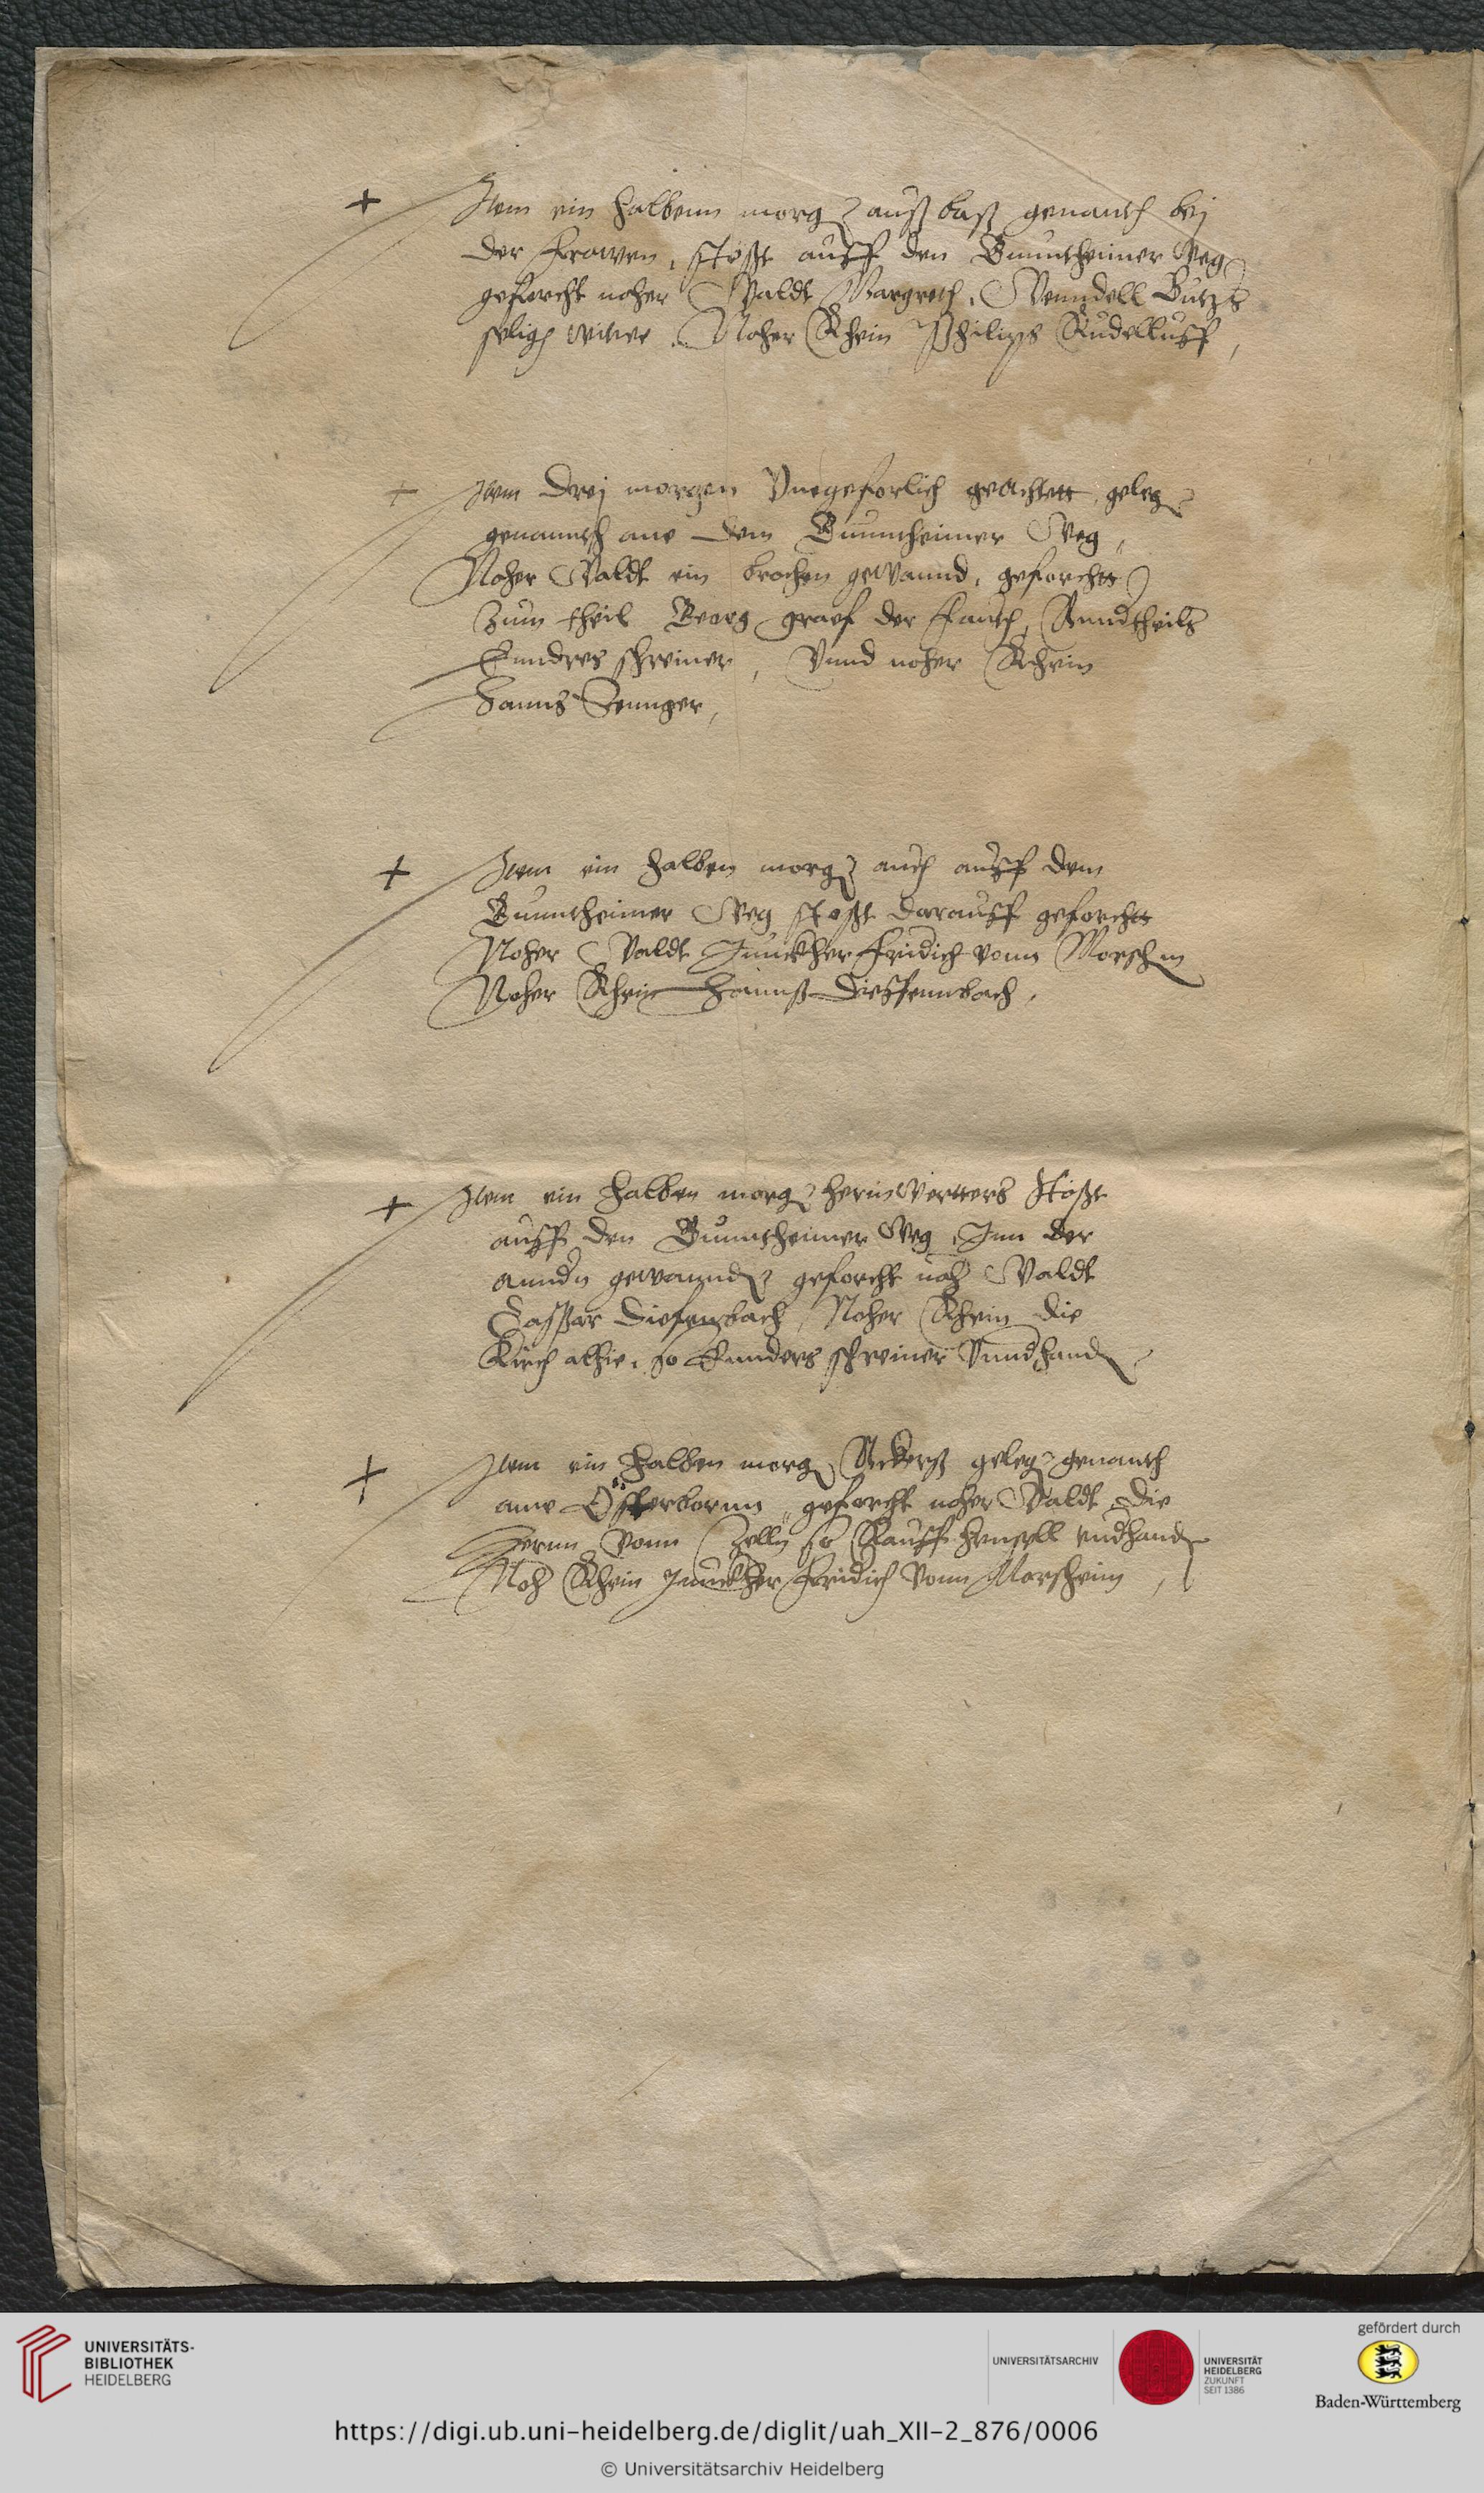 + Item ein halbenn morg auß baß genanth bej
der frawen, stoßt auff den Gunntheimer Weg
geforcht noher Waldt Margreth, Wenndell Butzs
selig witwe. Noher Rhein Philips Rudelluff,
+ Item drej morgen Vnegeforlich geachtett, geleg
genannth ane dem Gunntheimer Weg,
Noher Waldt ein brochen gewannd, geforchtt
Zum theil Georg graef der fauth, Annd theils
Enndres schreiner, Vnnd noher Rhein
Hanns Zennger,
+ Item ein halben morg auch auff dem
Gunntheimer Weg stoßt darauff geforchtt
Noher Waldt Junckher Fridich vonn Morschen
Noher Rhein Hannß Dieffennbach,
+ Item ein halben morg herin Wertters stoßt
auff den Gunntheimer Weg, Inn der
anndn gewannd geforcht noh Waldt
Casspar Diefenbach, Noher Rhein die
Kirch alhie, soEnnders schreiner Vnndhand
+ Item ein halben morg Ackerß geleg genanth
ane Österbornn, geforcht noher Waldt die
Hernn Vonn Zelln so Rauff hensell vndhand
Noh Rhein Junckher Fridich Vonn Morscheim,
UNIVERSITÄTS-
BIBLIOTHEK
HEIDELBERG
UNIVERSITÄTSARCHIV
UNIVERSITÄT
HEIDELBERG
ZUKUNFT
SEIT 1386
gefördert durch
Baden-Württemberg
https://digi.ub.uni-heidelberg.de/diglit/uah_XII-2_876/0006
© Universitätsarchiv Heidelberg